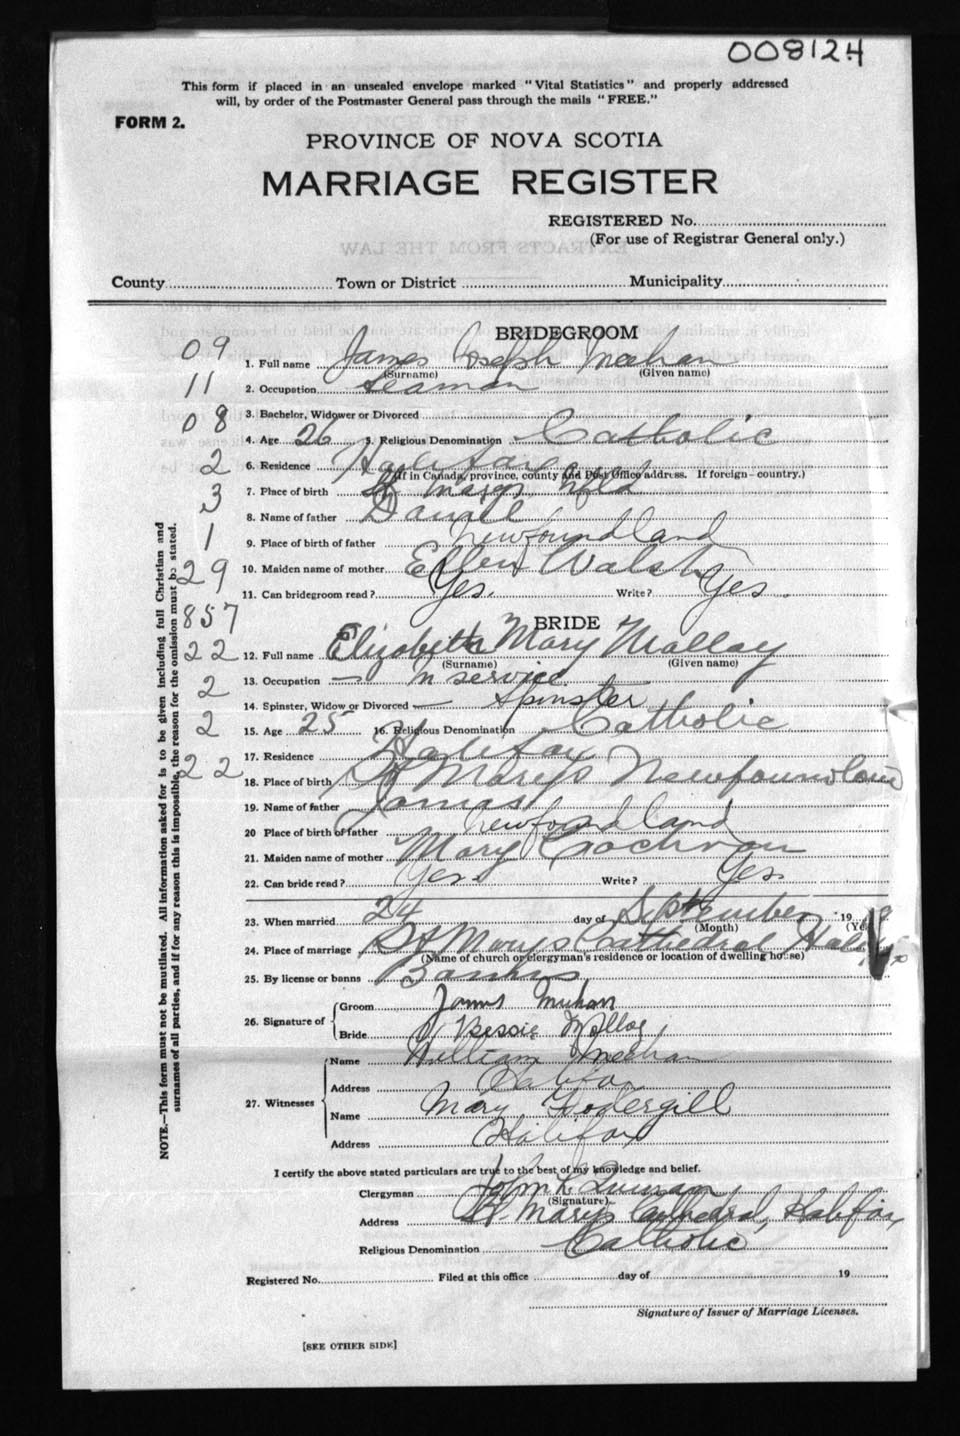 008124
This form if placed in an unsealed envelope marked "Vital Statistics" and properly addressed
will, by order of the Postmaster General pass through the mails "FREE."
FORM 2.
PROVINCE OF NOVA SCOTIA
MARRIAGE REGISTER
REGISTERED No.
(For use of Registrar General only.)
EXTRACTS FROM THE LAW
County Town or District Municipality
BRIDEGROOM
09
1. Full name James Joseph Meehan
(Surname) (Given name)
11
2. Occupation Seaman
08
3. Bachelor, Widower or Divorced
4. Age 26 5. Religious Denomination Catholic
2
6. Residence Halifax
(If in Canada, province, county and Post Office address. If foreign—country.)
3
7. Place of birth St Marys Nfld
8. Name of father Daniel
1
9. Place of birth of father Newfoundland
29
10. Maiden name of mother Ellen Walsh
11. Can bridegroom read? Yes. Write? Yes.
857
BRIDE
22
12. Full name Elizabeth Mary Malloy
(Surname) (Given name)
2
13. Occupation — In service
14. Spinster, Widow or Divorced — Spinster
2
15. Age 25 16. Religious Denomination Catholic
17. Residence Halifax
22
18. Place of birth St Mary's Newfoundland
19. Name of father James
20 Place of birth of father Newfoundland
21. Maiden name of mother Mary Cochran
22. Can bride read? Yes. Write? Yes
23. When married 24 day of September 19
(Month)
24. Place of marriage St Mary's Cathedral
(Name of church or clergyman's residence or location of dwelling house)
25. By license or banns Banns
26. Signature of
Groom James Meehan
Bride Bessie Molloy
27. Witnesses
Name William Meehan
Address Halifax
Name Mary Fodergill
Address Halifax
I certify the above stated particulars are true to the best of my knowledge and belief.
Clergyman John L Quinan
(Signature)
Address St Mary's Cathedral, Halifax,
Religious Denomination Catholic
Registered No. Filed at this office day of 19
Signature of Issuer of Marriage Licenses.
[SEE OTHER SIDE]
NOTE.—This form must not be mutilated. All information asked for is to be given including full Christian and
surnames of all parties, and if for any reason this is impossible, the reason for the omission must be stated.